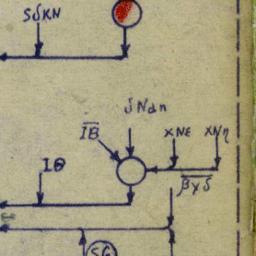 SδKN
δNαn
IB
XNε XNη
Iθ
βγδ
SG